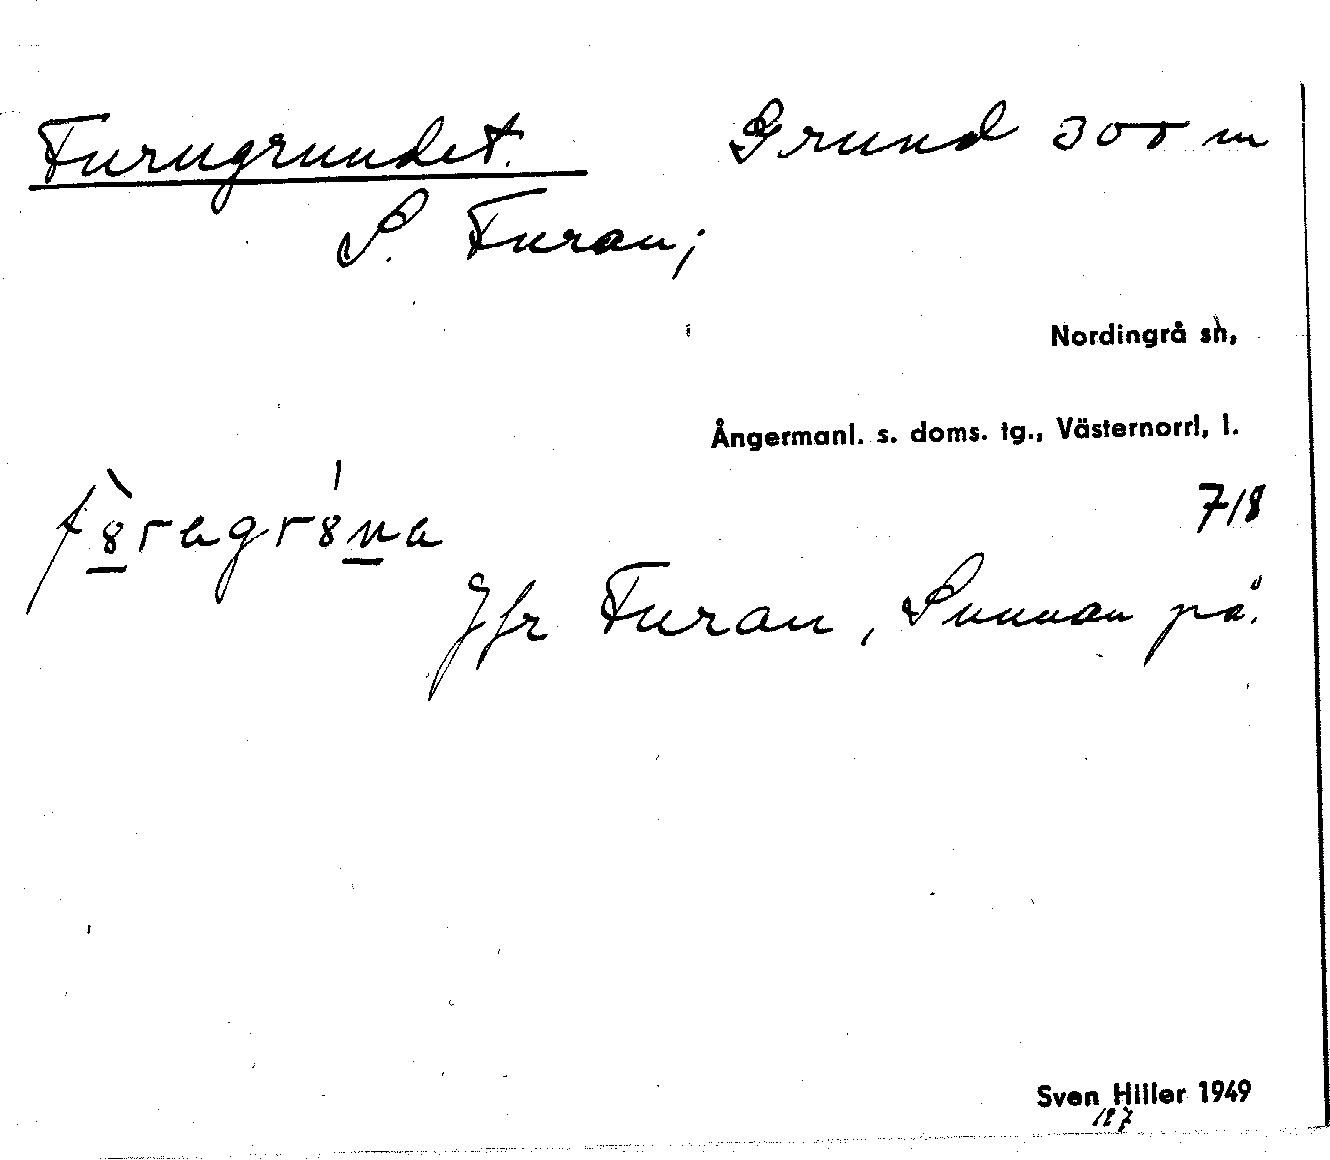 Furugrundet. Grund 300 m
S. Furan;
Nordingrå sh,
Ångermanl. s. doms. tg., Västernorrl, l.
718
f8̲̀ragr8́n̲a
Jfr Furan, Sunnan på.
Sven Hiller 1949
187